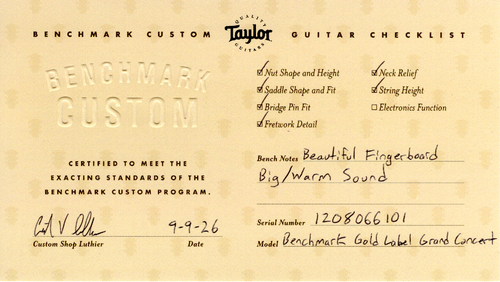 BENCHMARK CUSTOM QUALITY Taylor GUITARS GUITAR CHECKLIST
BENCHMARK
CUSTOM
CERTIFIED TO MEET THE
EXACTING STANDARDS OF THE
BENCHMARK CUSTOM PROGRAM.
9-9-26
Custom Shop Luthier Date
Nut Shape and Height
Saddle Shape and Fit
Bridge Pin Fit
Fretwork Detail
Neck Relief
String Height
Electronics Function
Bench Notes Beautiful Fingerboard
Big/Warm Sound
Serial Number 1208066101
Model Benchmark Gold Label Grand Concert